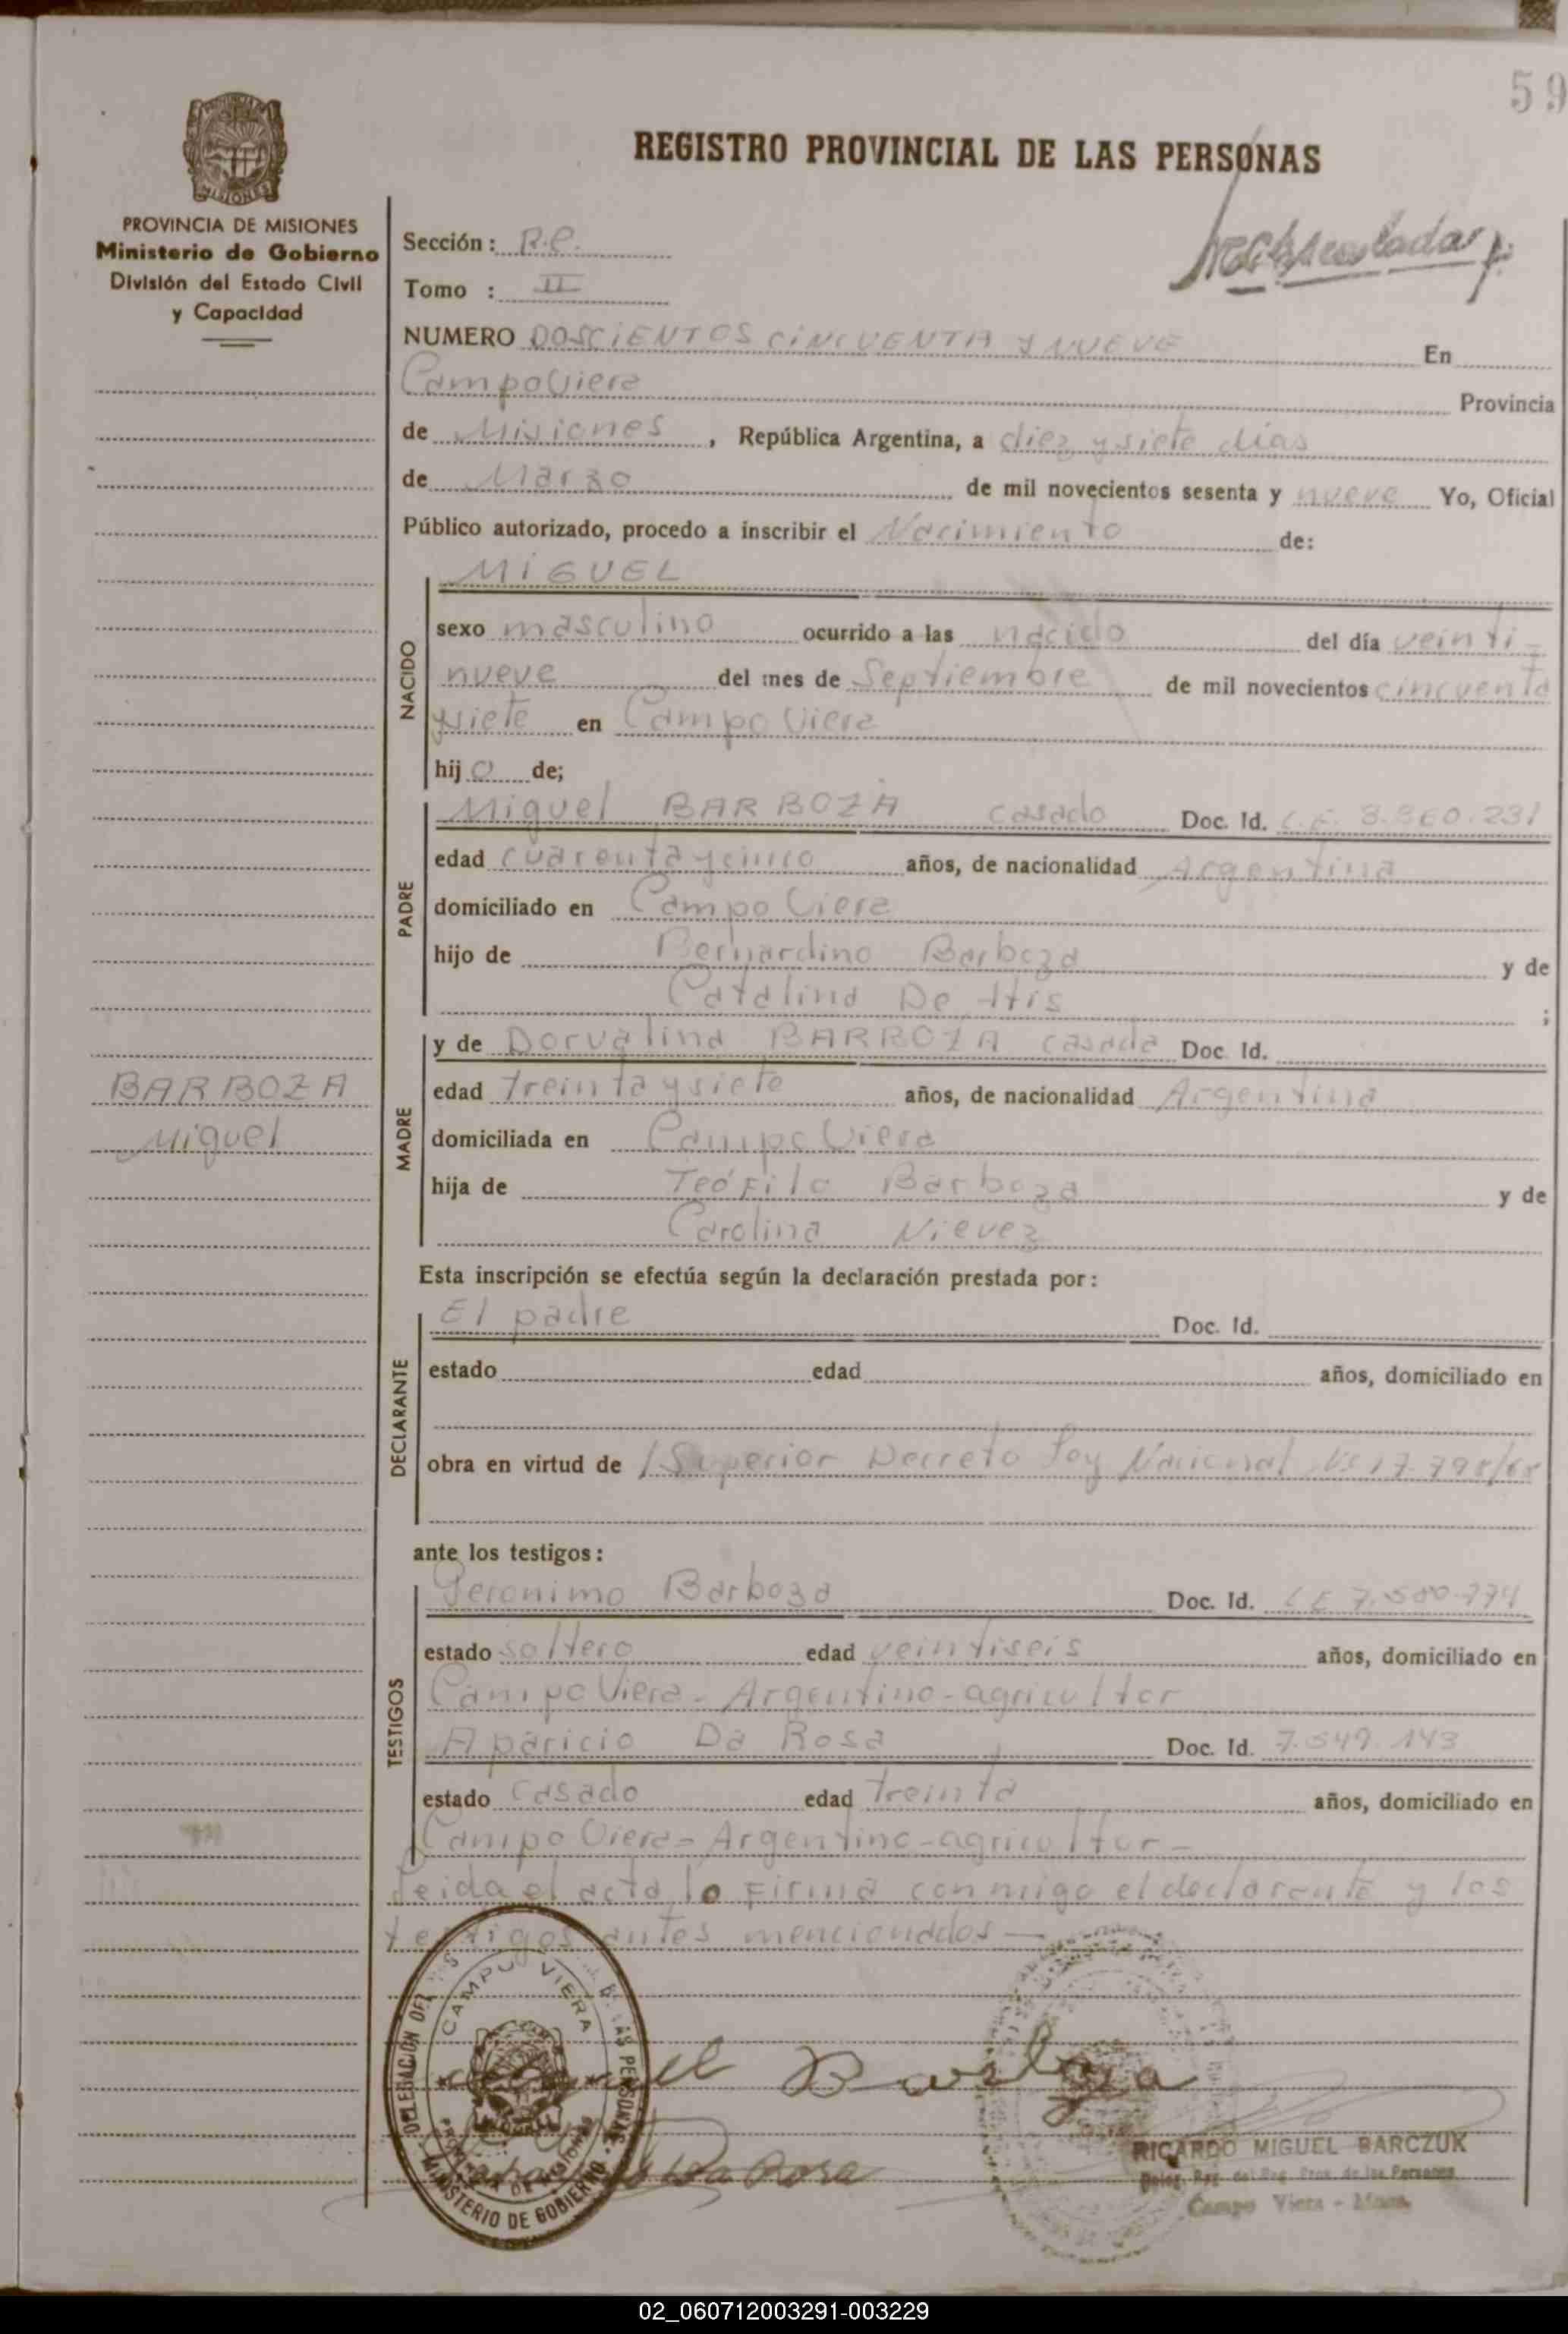 59
REGISTRO PROVINCIAL DE LAS PERSONAS
PROVINCIA DE MISIONES
Ministerio de Gobierno
División del Estado Civil
y Capacidad
Sección: R.C.
Tomo : II
NUMERO DOSCIENTOS CINCUENTA Y NUEVE En
Campo Viera Provincia
de Misiones, República Argentina, a diez y siete días
de Marzo de mil novecientos sesenta y nueve Yo, Oficial
Público autorizado, procedo a inscribir el Nacimiento de:
NACIDO
MIGUEL
sexo masculino ocurrido a las nacido del día veinti-
nueve del mes de Septiembre de mil novecientos cincuenta
y siete en Campo Viera
hijo de;
PADRE
Miguel BARBOZA casado Doc. Id. 3.360.231
edad cuarenta y cinco años, de nacionalidad Argentina
domiciliado en Campo Viera
hijo de Bernardino Barboza y de
Catalina De ;
MADRE
y de Dorvalina BARBOZA casada Doc. Id.
edad treinta y siete años, de nacionalidad Argentina
domiciliada en Campo Viera
hija de Teófilo Barboza y de
Carolina Nievez
BARBOZA
Miguel
Esta inscripción se efectúa según la declaración prestada por:
DECLARANTE
El padre Doc. Id.
estado edad años, domiciliado en
obra en virtud de Superior Decreto Ley Nacional Nº 17.798/68
ante los testigos:
TESTIGOS
Geronimo Barboza Doc. Id.
estado soltero edad veintiseis años, domiciliado en
Campo Viera - Argentino - agricultor
Aparicio Da Rosa Doc. Id. 7.549.143
estado casado edad treinta años, domiciliado en
Campo Viera - Argentino - agricultor -
Leida el acta lo firma conmigo el declarante y los
testigos antes mencionados —
DELEGACION DE LAS PERSONAS
CAMPO VIERA
PROVINCIA DE MISIONES
MINISTERIO DE GOBIERNO
Barboza
Da Rosa
RICARDO MIGUEL BARCZUK
Deleg. Reg. del Reg. Prov. de las Personas
Campo Viera - Mnes.
02_060712003291-003229